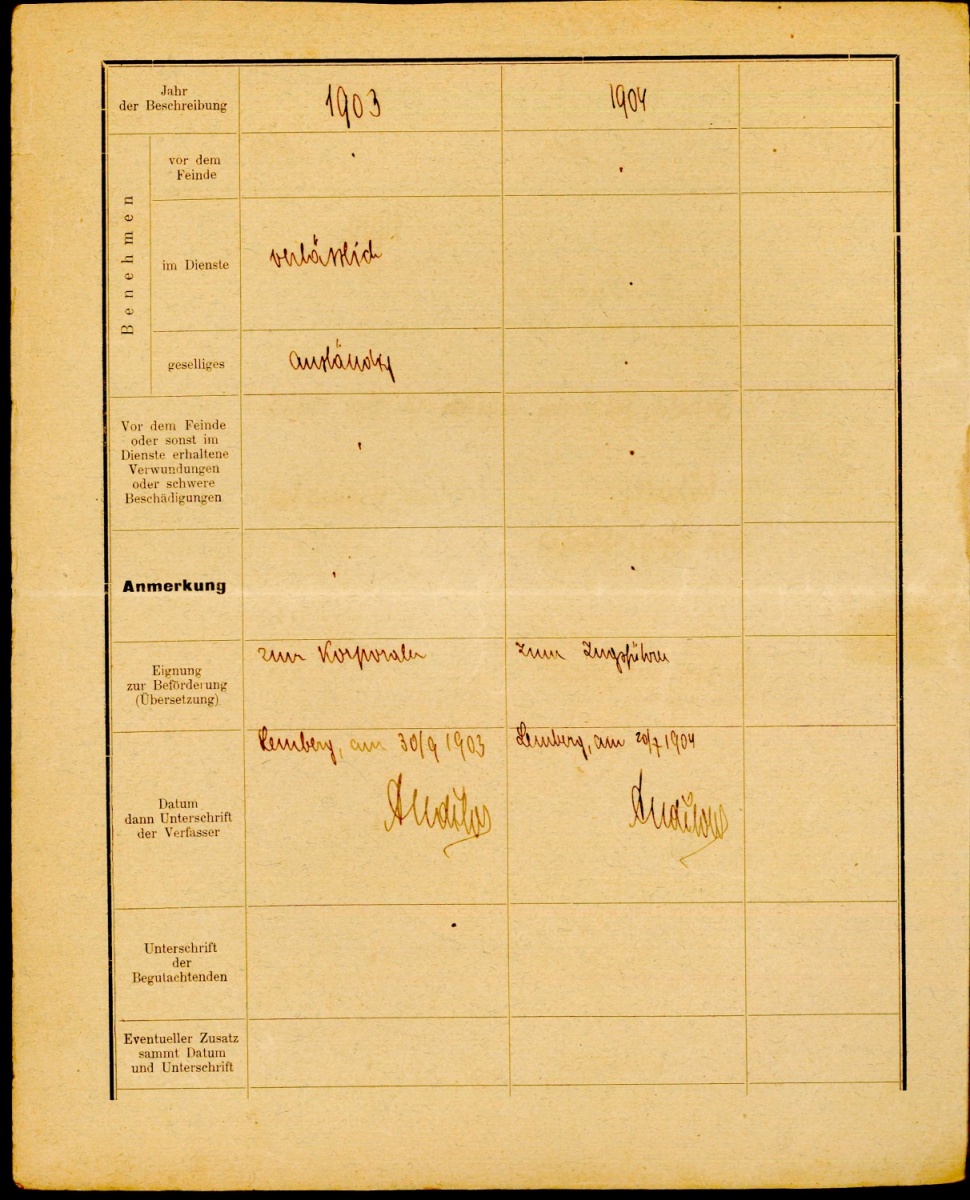 Jahr
der Beschreibung
1903
1904
Benehmen
vor dem
Feinde
im Dienste
verlässlich
geselliges
anständig
Vor dem Feinde
oder sonst im
Dienste erhaltene
Verwundungen
oder schwere
Beschädigungen
Anmerkung
Eignung
zur Beförderung
(Übersetzung)
zum Korporalen
zum Zugsführer
Datum
dann Unterschrift
der Verfasser
Lemberg, am 30/9 1903
Lemberg, am 20/7 1904
Unterschrift
der
Begutachtenden
Eventueller Zusatz
sammt Datum
und Unterschrift